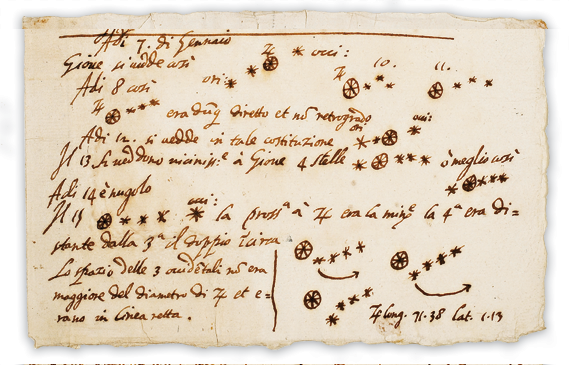 Adi 7. di Gennaio
Giove si vedde così ori: occi: 10. 11.
Adi 8 così
era dunq diretto et nō retrogrado
Adi 12. si vedde in tale costituzione ori: occi:
Il 13 si veddono vicinissᵉ à Giove 4 stelle ò meglio così
Adi 14 è nugolo
Il 15 occi: la prossᵃ à ♃ era la minᵉ la 4ᵃ era di=
stante dalla 3ᵃ il doppio incirca
Lo spazio delle 3 occidētali nō era
maggiore del diametro di ♃ et e=
rano in linea retta.
♃ long. 71.38 lat. 1.13